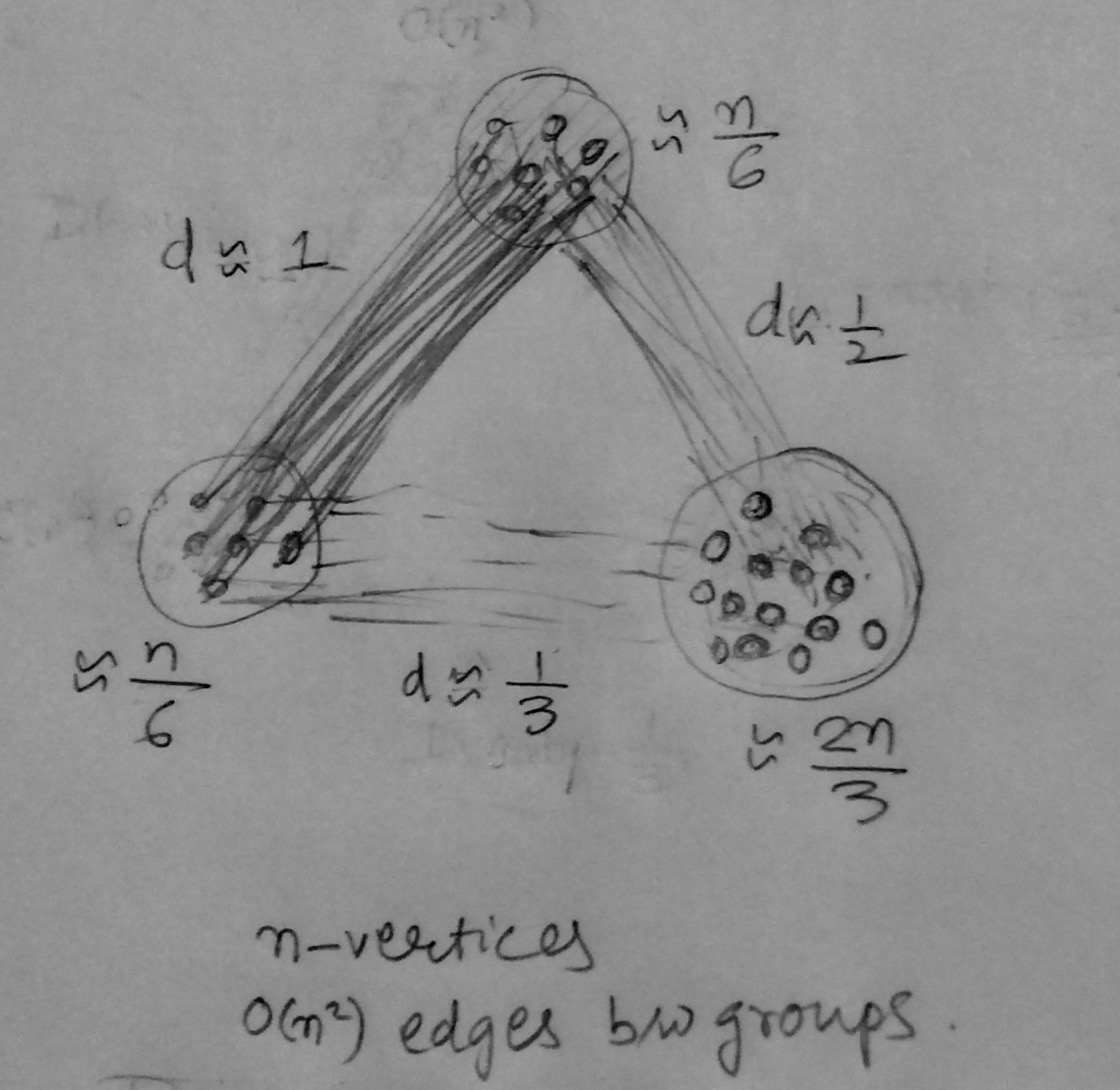 ≈ n/6
d ≈ 1
d ≈ 1/2
≈ n/6
d ≈ 1/3
≈ 2n/3
n-vertices
O(n²) edges b/w groups.